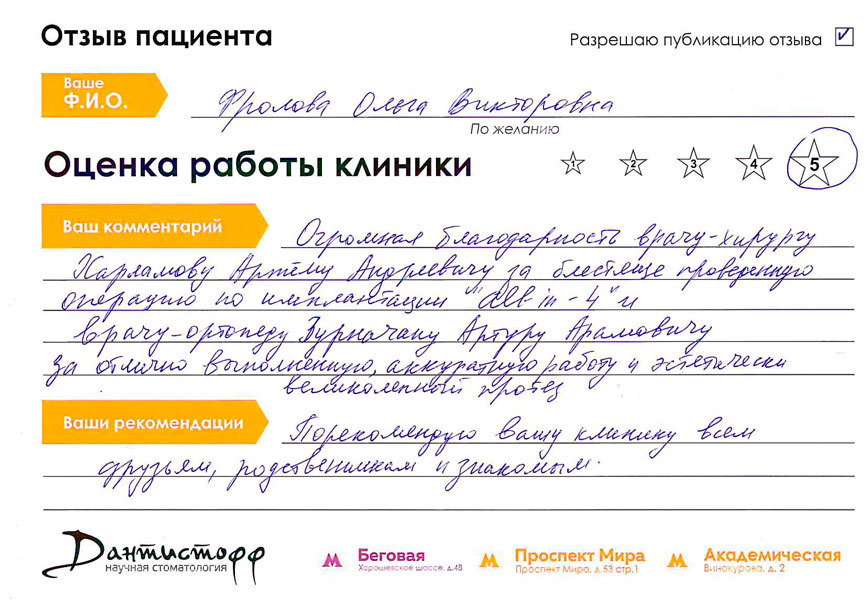 Отзыв пациента
Разрешаю публикацию отзыва
Ваше
Ф.И.О.
Фролова Ольга Викторовна
По желанию
Оценка работы клиники
1 2 3 4 5
Ваш комментарий
Огромная благодарность врачу-хирургу
Харламову Артёму Андреевичу за блестяще проведенную
операцию по имплантации "all in-4" и
врачу-ортопеду Зурначану Артуру Арамовичу
за отлично выполненную, аккуратную работу и эстетически
великолепный протез
Ваши рекомендации
Порекомендую вашу клинику всем
друзьям, родственникам и знакомым.
Дантистофф
научная стоматология
Беговая
Хорошевское шоссе, д.48
Проспект Мира
Проспект Мира, д.53 стр.1
Академическая
Винокурова, д. 2